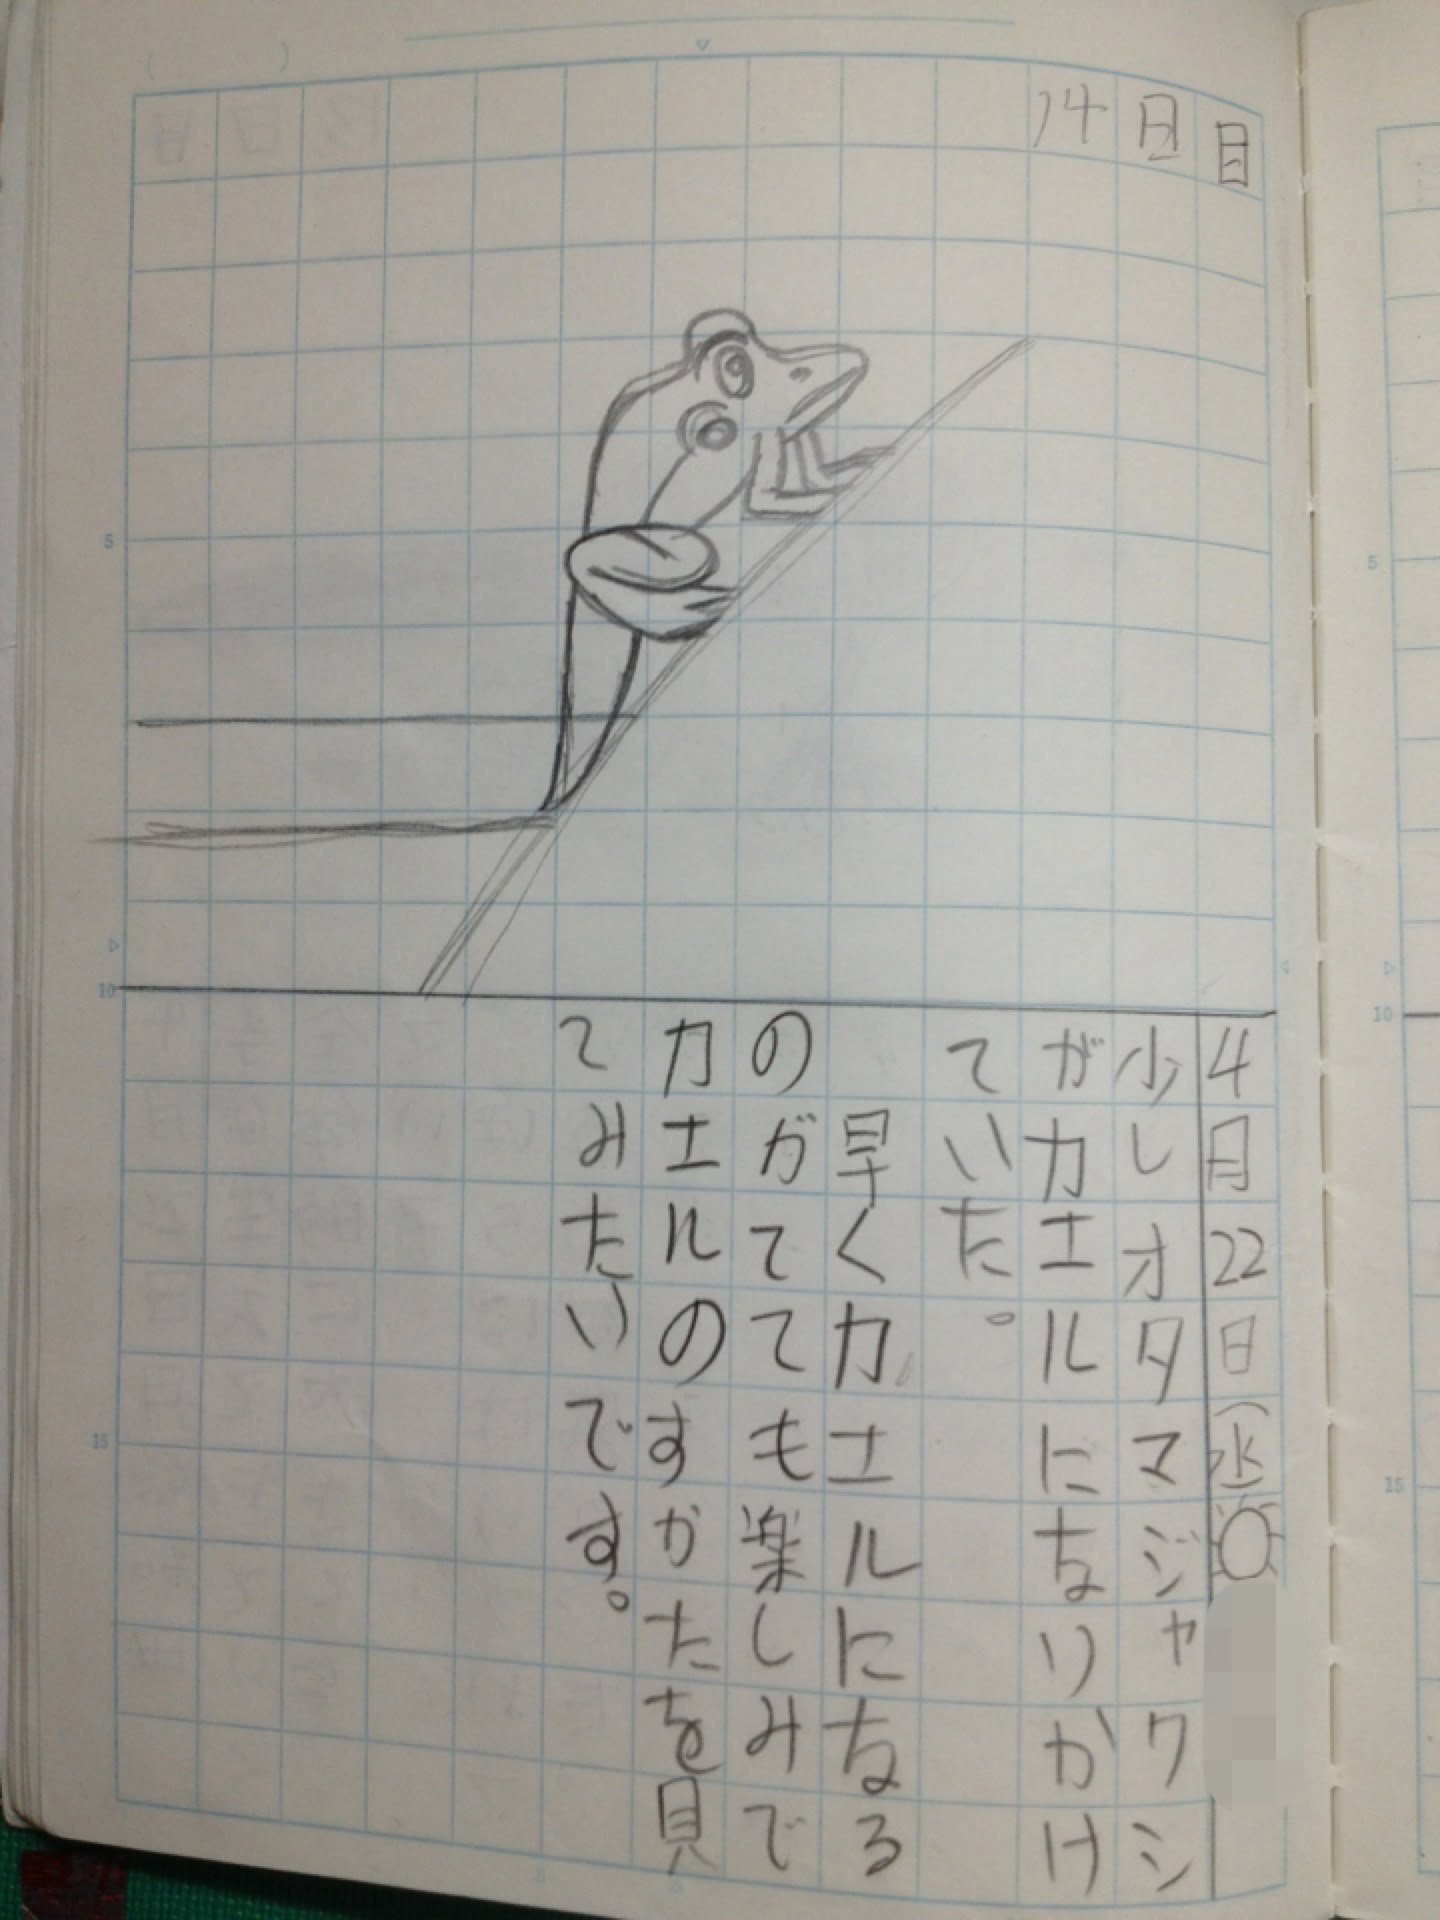 14日目
4月22日(水
少しオタマジャクシ
がカエルになりかけ
ていた。
早くカエルになる
のがてても楽しみで
カエルのすかたを見
てみたいです。
5
10
15
5
10
15